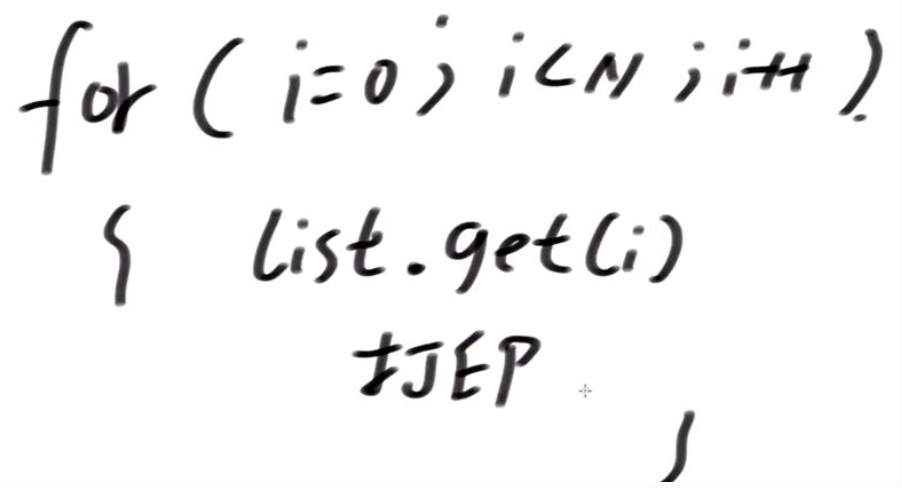 for ( i=0 ; i<N ; i++ )
{ list.get(i)
打印
}